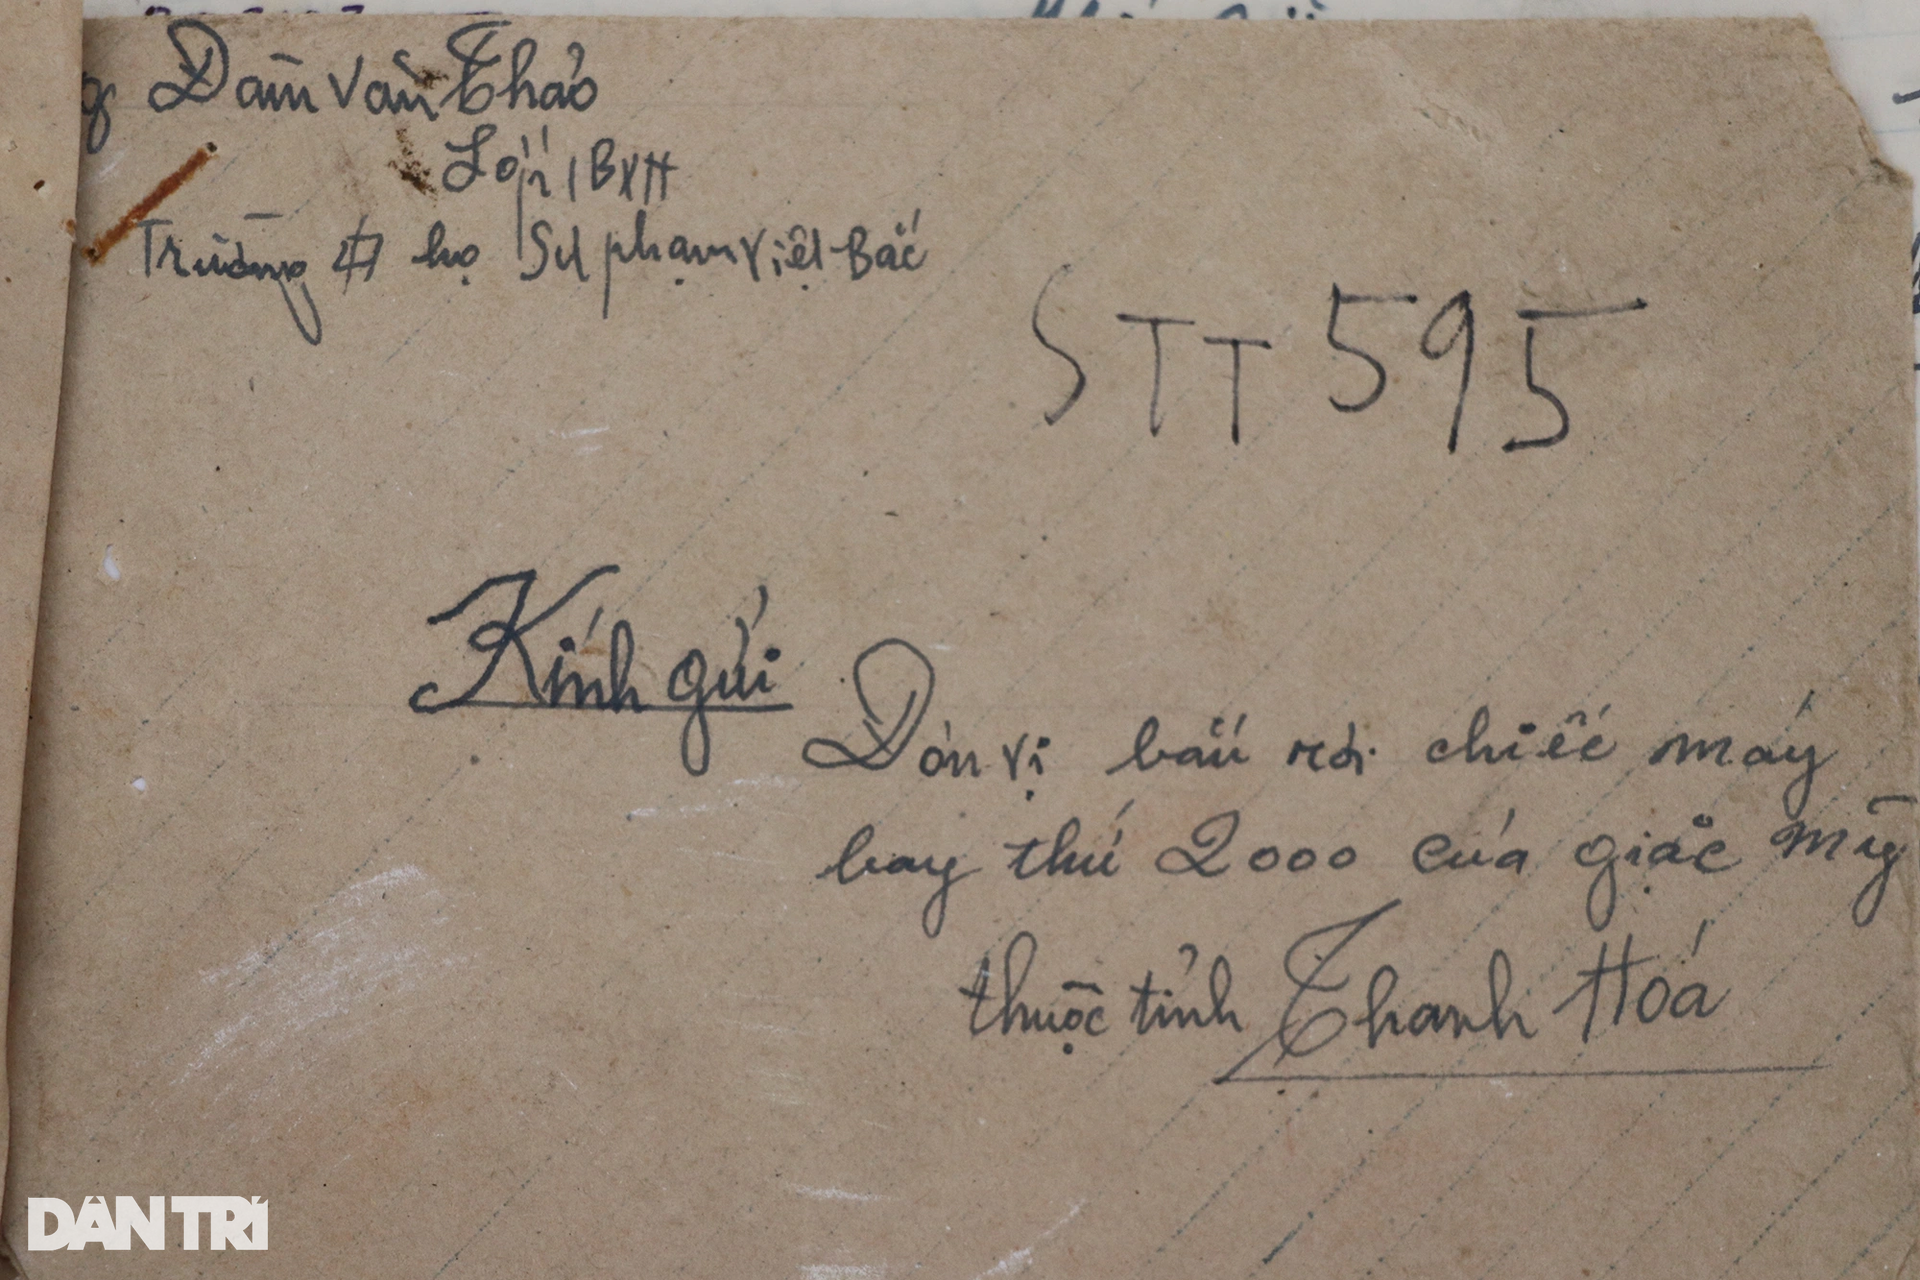 g Đàm Văn Thảo
Lớp 1BXH
Trường họ Sư phạm Việt-Bắc
STT 595
Kính gửi
Đơn vị bắn rơi chiếc máy
bay thứ 2000 của giặc mỹ
thuộc tỉnh Thanh Hoá
DÂN TRÍ